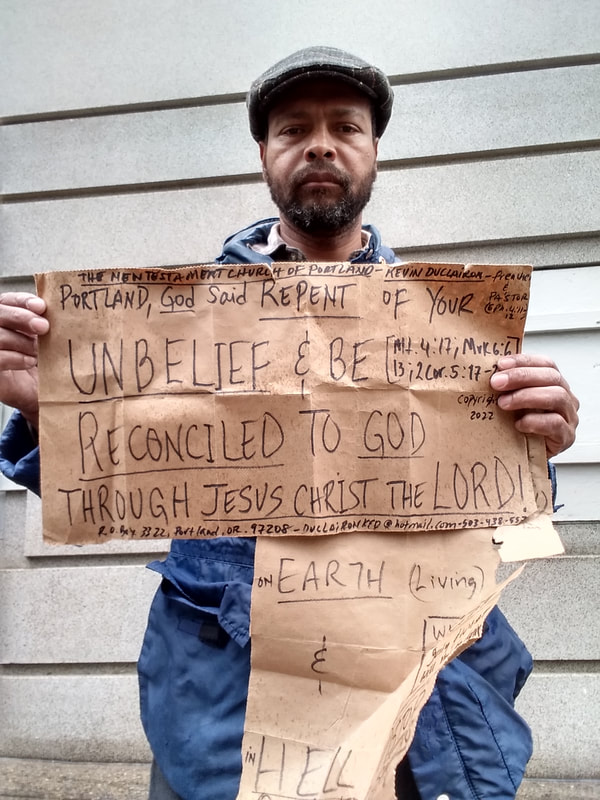 THE NEW TESTAMENT CHURCH OF PORTLAND - KEVIN DUCLAIRON -
PORTLAND, God Said REPENT OF YOUR
& PASTOR
UNBELIEF & BE [Mt. 4:17, Mrk 6:6
13; 2 Cor. 5:17-
Copyright
2022
RECONCILED TO GOD
THROUGH JESUS CHRIST THE LORD!
P.O. Box 3322, Portland, OR. 97208 - DUCLAIRONKED@hotmail.com - 503-438-
ON EARTH (Living)
&
IN HELL